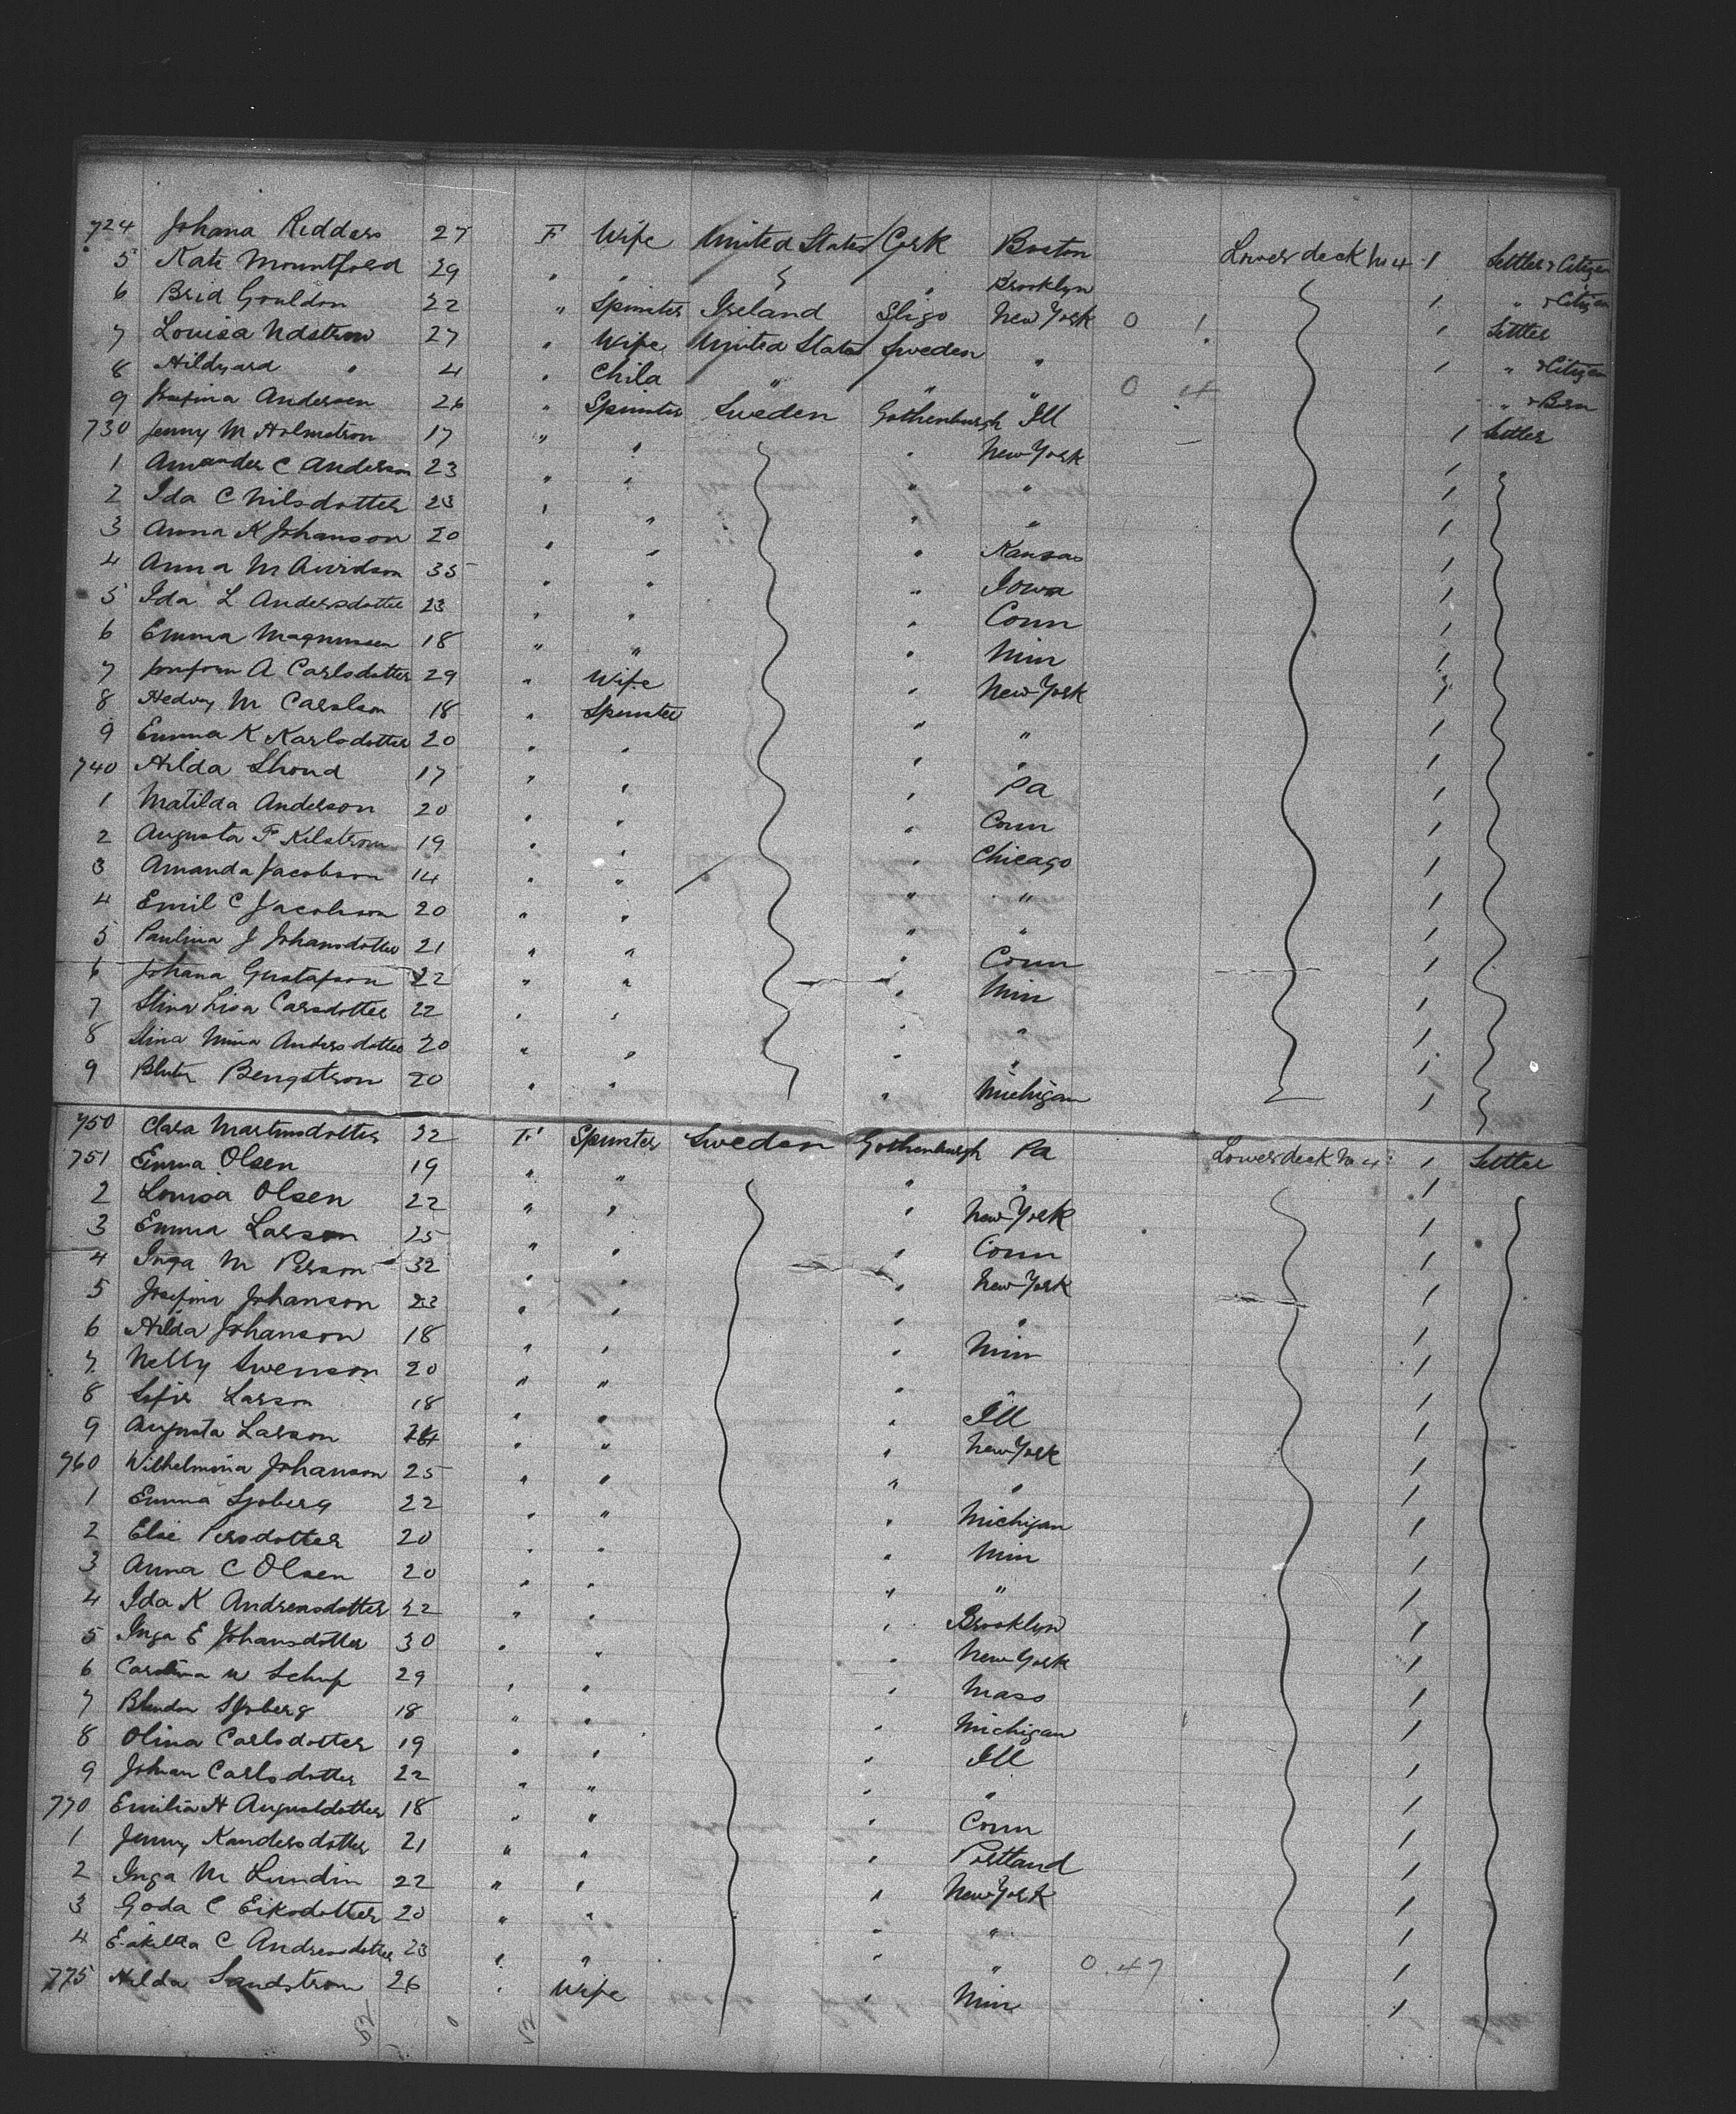 724 Johana Ridders 27 F Wife United States Cork Boston Lower deck No 4 1 Settler & Citizen
5 Kate Mountford 29 " " " Brooklyn 1 " & Citizen
6 Brid Gouldon 22 " Spinster Ireland Sligo New York 0 1 1 Settler
7 Louisa Ndstrom 27 " Wife United States Sweden " 1 " & Citizen
8 Hildyard " 4 " Child " " " 0 14 " & Born
9 Josefina Andersen 26 " Spinster Sweden Gothenburgh Ill 1 Settler
730 Jenny M Holmstrom 17 " " " New York 1
1 Amander C Anderson 23 " " " " 1
2 Ida C Nilsdotter 23 " " " " 1
3 Anna K Johanson 20 " " " Kansas 1
4 Anna M 35 " " " Iowa 1
5 Ida L Andersdotter 23 " " " Conn 1
6 Emma Magnussen 18 " " " Min 1
7 A Carlsdotter 29 " Wife " New York 1
8 Hedvig M Carolson 18 " Spinster " " 1
9 Emma K Karlsdotter 20 " " " " 1
740 Hilda Shond 17 " " " Pa 1
1 Matilda Anderson 20 " " " Conn 1
2 Augusta F Kilstrom 19 " " " Chicago 1
3 Amanda Jacobson 14 " " " " 1
4 Emil C Jacobson 20 " " " " 1
5 Paulina J Johansdotter 21 " " " Conn 1
6 Johana Gustafson 22 " " " Min 1
7 Stina Lisa Carsdotter 22 " " " " 1
8 Stina Mina Andersdotter 20 " " " " 1
9 Bengstrom 20 " " " Michigan 1
750 Clara Martinsdotter 22 F Spinster Sweden Gothenburgh Pa Lower deck No 4 1 Settler
751 Emma Olsen 19 " " " " 1
2 Louisa Olsen 22 " " " New York 1
3 Emma Larson 25 " " " Conn 1
4 Inga M Person 32 " " " New York 1
5 Josefina Johanson 23 " " " " 1
6 Hilda Johanson 18 " " " Min 1
7 Nelly Swenson 20 " " " " 1
8 Sofie Larson 18 " " " Ill 1
9 Augusta Larson " " " New York 1
760 Wilhelmina Johanson 25 " " " " 1
1 Emma Sjoberg 22 " " " Michigan 1
2 Elsie Persdotter 20 " " " Min 1
3 Anna C Olsen 20 " " " " 1
4 Ida K Andreasdotter 22 " " " Brooklyn 1
5 Inga E Johansdotter 30 " " " New York 1
6 Carolina W 29 " " " Mass 1
7 Sjoberg 18 " " " Michigan 1
8 Olina Carlsdotter 19 " " " Ill 1
9 Johan Carlsdotter 22 " " " " 1
770 Emilia H Augustdotter 18 " " " Conn 1
1 Jenny Kandersdotter 21 " " " Portland 1
2 Inga M Lundin 22 " " " New York 1
3 Goda C Eiksdotter 20 " " " " 1
4 C Andreasdotter 23 " " " " 0.47 1
775 Hilda Sandstrom 26 " Wife " Min 1